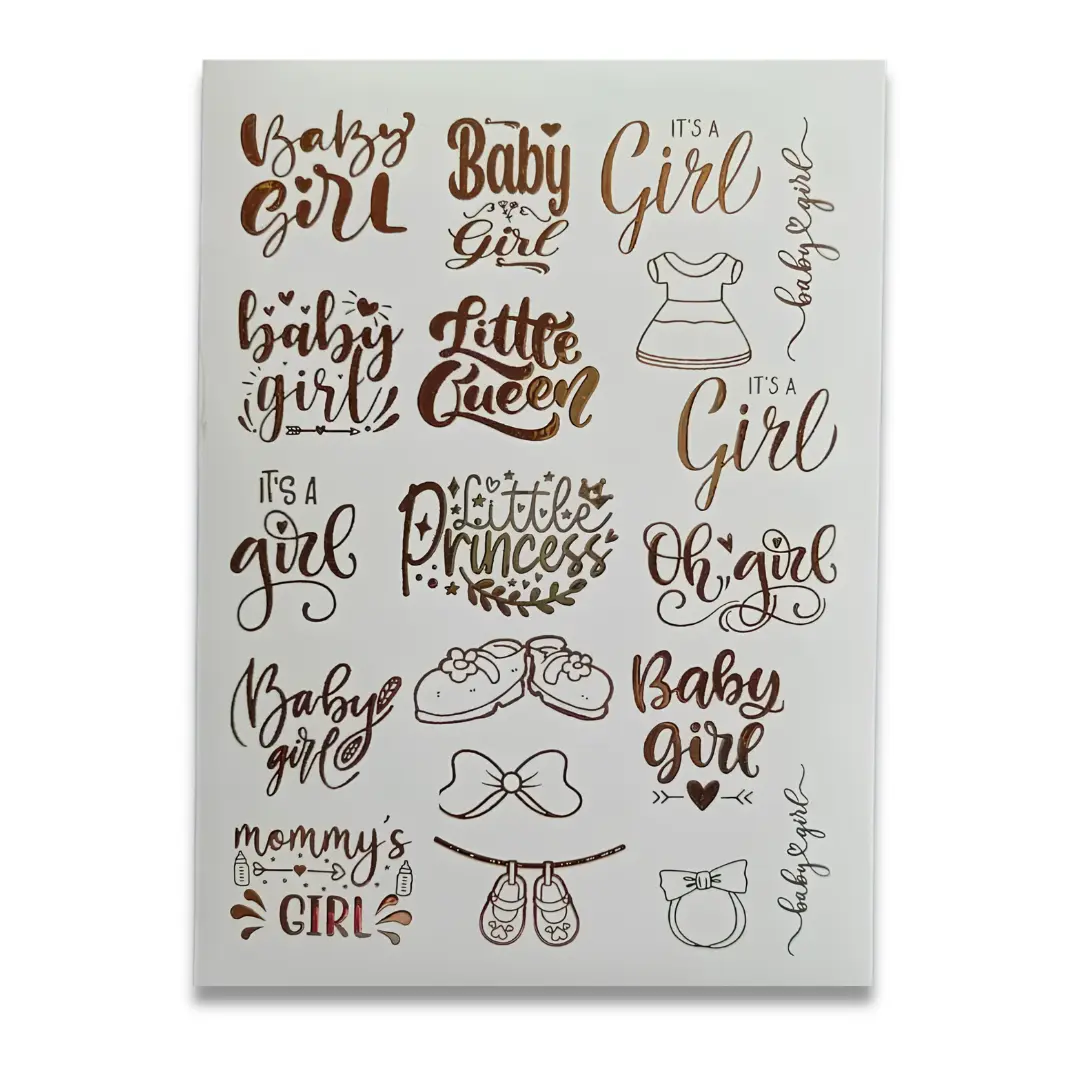 Baby
Girl
Baby
Girl
IT'S A
Girl
baby girl
baby
girl
Little
Queen
IT'S A
Girl
IT'S A
girl
Little
Princess
Oh, girl
Baby
girl
Baby
girl
mommy's
GIRL
baby girl